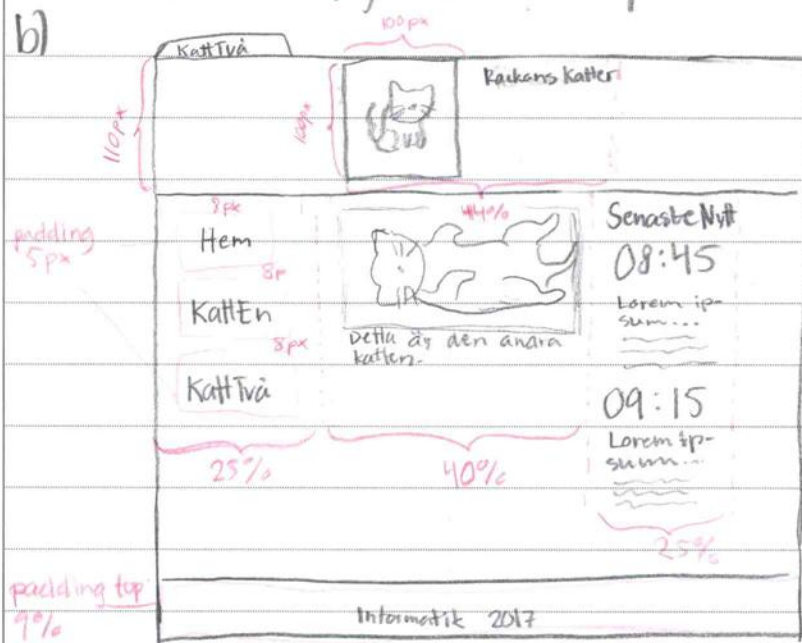 b)
100px
KattTvå
110px
100px
Rackans Katter
44%
padding
5px
8px
Hem
8p
KattEn
8px
KattTvå
Detta är den andra
katten.
Senaste Nytt
08:45
Lorem ip-
sum...
09:15
Lorem ip-
sum...
25%
40%
25%
padding top
9%
Informatik 2017